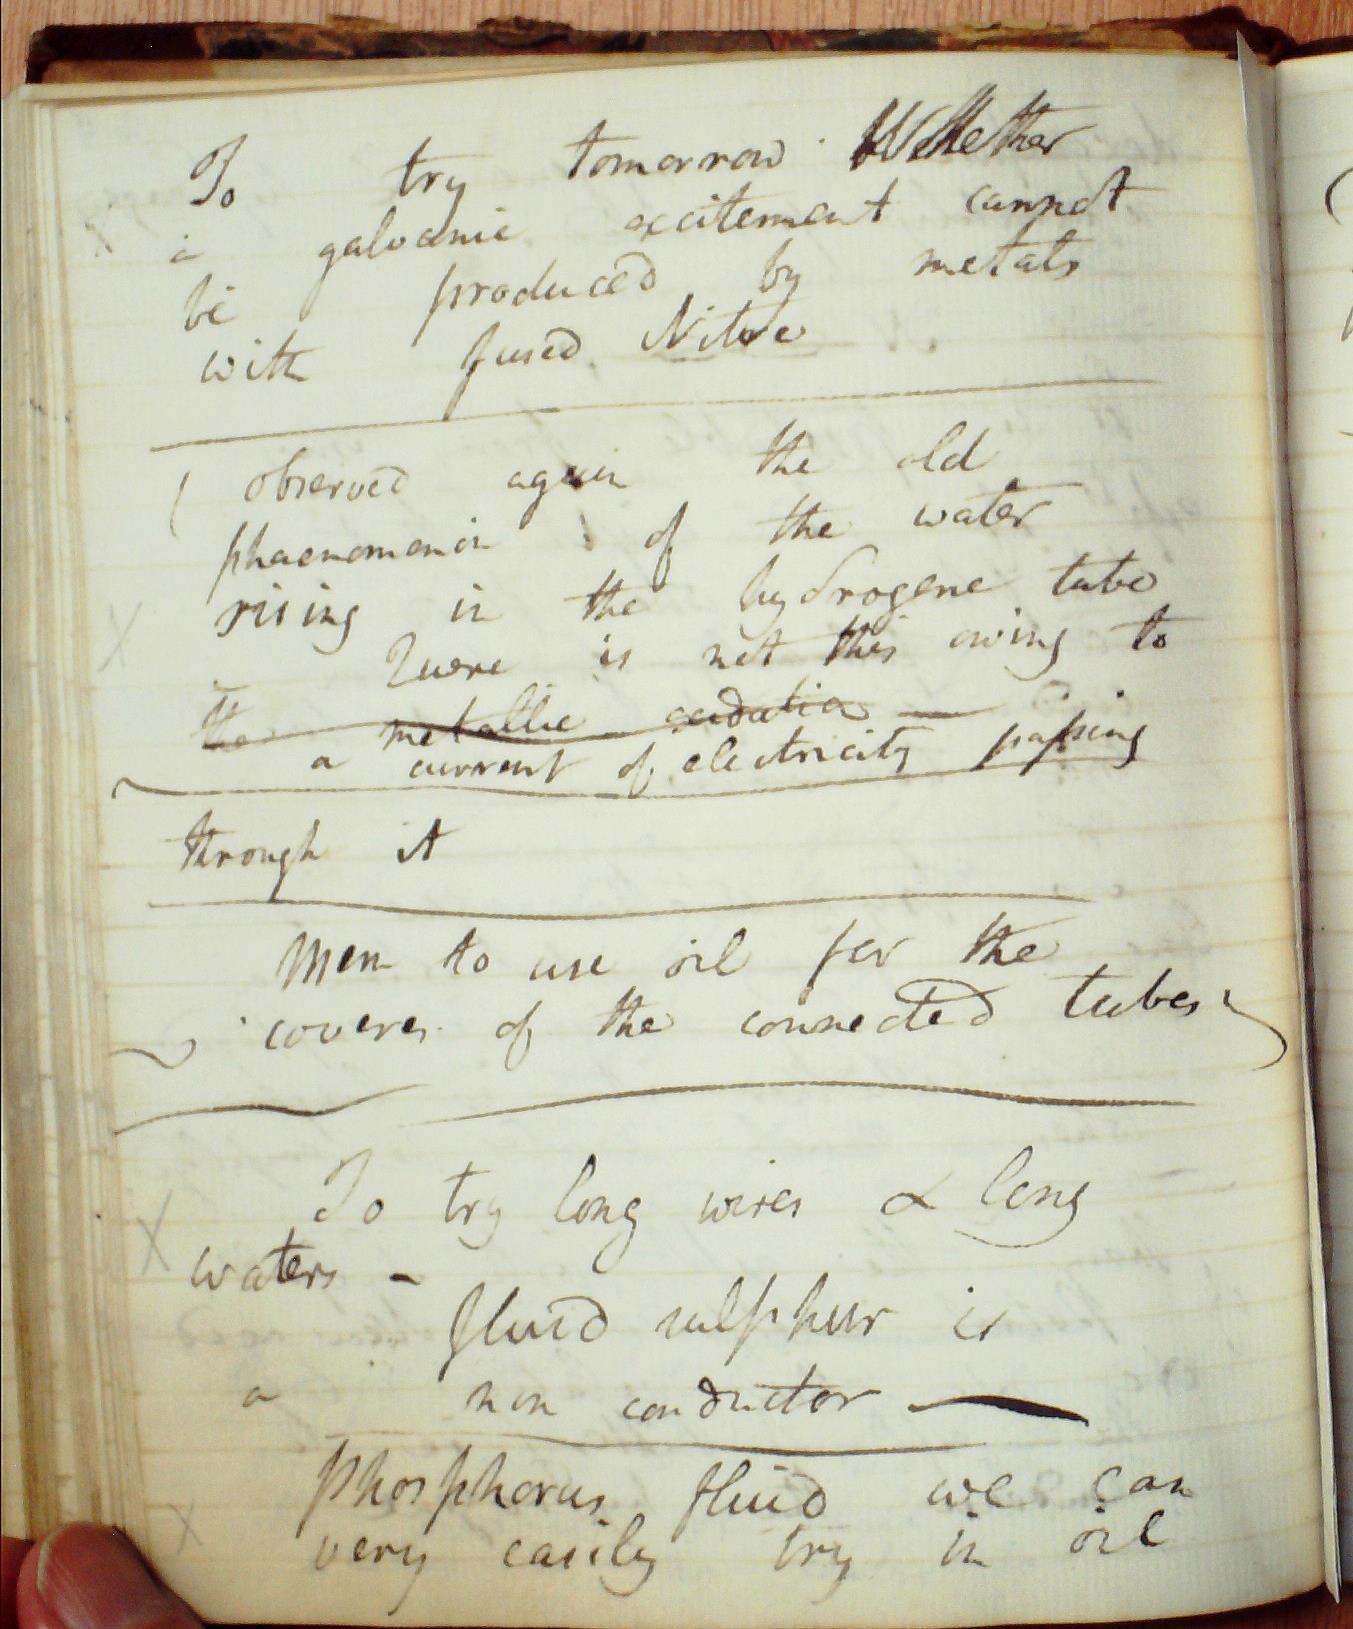 To try tomorrow Whether
a galvanic excitement cannot
be produced by metals
with fused Nitre
observed again the old
phaenomenon of the water
rising in the hydrogene tube
- Quere is not this owing to
the metallic oxidation
a current of electricity passing
through it
Mem to use oil for the
covers of the connected tubes
To try long wires & long
waters -
fluid sulphur is
a non conductor
Phosphorus fluid we can
very easily try in oil